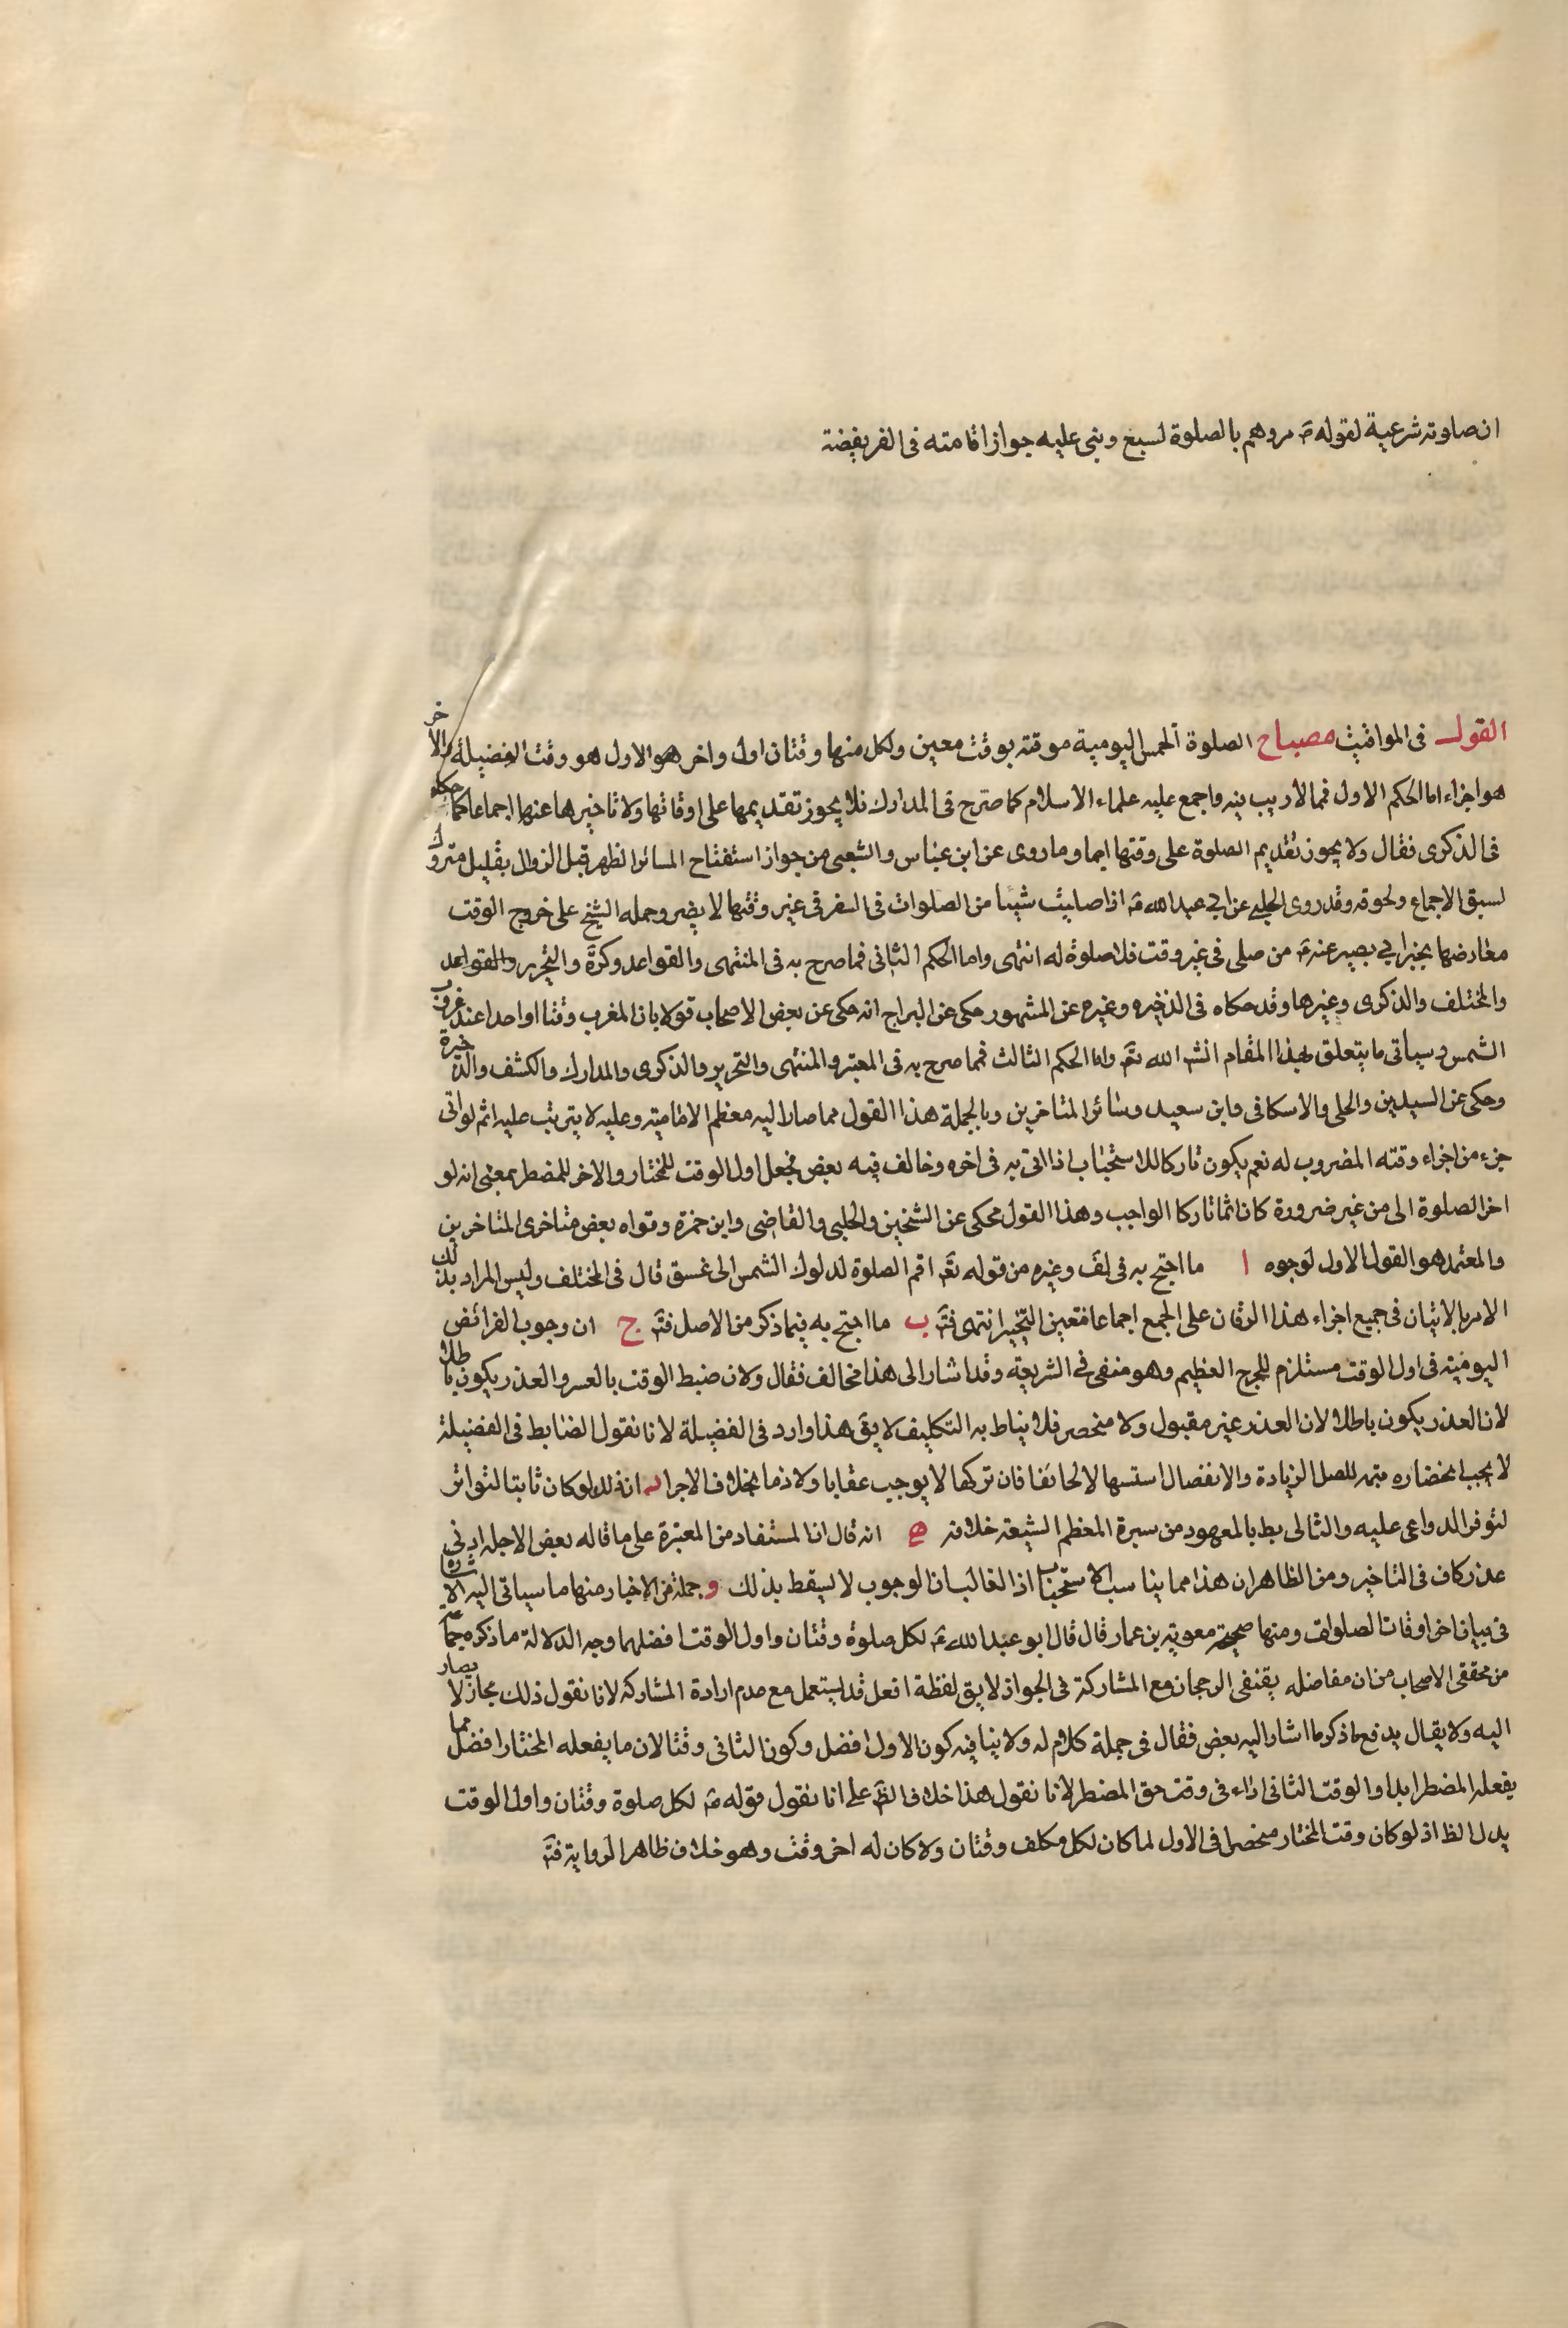 ان صلوته شرعية لقوله ع مروهم بالصلوة لسبع وبنى عليه جواز اقامته فى الفريضة
القول فى المواقيت مصباح الصلوة الخمس اليومية موقتة بوقت معين ولكل منها وقتان اول واخر هو الاول هو وقت الفضيلة والاخر
هو اجزاء اما الحكم الاول فمما لا ريب فيه واجمع عليه علماء الاسلام كما صرح فى المدارك فلا يجوز تقديمها على اوقاتها ولا تاخيرها عنها اجماعا كما حكاه
فى الذكرى فقال ولا يجوز تقديم الصلوة على وقتها اجما وما روى عن ابن عباس والشعبى من جواز استفتاح المسافر الظهر قبل الزوال بقليل متروك
لسبق الاجماع ولحوقه وقد روى الحلبى عن ابى عبد الله ع اذا صليت شيئا من الصلوات فى السفر فى غير وقتها لا يضر وحمله الشيخ على خروج الوقت
معارضها بخبر ابى بصير عنه ع من صلى فى غير وقت فلا صلوة له انتهى واما الحكم الثانى فمما صرح به فى المنتهى والقواعد وكرة والتحرير والقواعد
والمختلف والذكرى وغيرها وقد حكاه فى الذخيره وغيره عن المشهور حكى عن البراج انه حكى عن بعض الاصحاب قولا بان المغرب وقتا واحدا عند غروب
الشمس وسياتى ما يتعلق بهذا المقام انش الله تع واما الحكم الثالث فمما صرح به فى المعتبر والمنتهى والتحرير والذكرى والمدارك والكشف والذخيرة
وحكى عن السيدين والحلى والاسكافى وابن سعيد وسائر المتاخرين وبالجملة هذا القول مما صار اليه معظم الامامية وعليه لا يترتب عليه اثم لو اتى
جزء من اجزاء وقته المضروب له نعم يكون تاركا للاستحباب اذا اتى به فى اخره وخالف فيه بعض فجعل اول الوقت للمختار والاخر للمضطر بمعنى انه لو
اخر الصلوة الى من غير ضرورة كان اثما تاركا الواجب وهذا القول محكى عن الشيخين والحلبى والقاضى وابن حمزة وقواه بعض متاخرى المتاخرين
والمعتمد هو القول الاول لوجوه ا ما احتج به فى لف وغيره من قوله تع اقم الصلوة لدلوك الشمس الى غسق قال فى المختلف وليس المراد بذلك
الامر بالاتيان فى جميع اجزاء هذا الزمان على الجمع اجماعا فتعين التخيير انتهى فت ب ما احتج به فيما ذكر من الاصل فت ج ان وجوب الفرائض
اليومية فى اول الوقت مستلزم للحرج العظيم وهو منفى فى الشريعة وقد اشار الى هذا مخالف فقال ولان ضبط الوقت بالعسر والعذر يكون باطلا
لان العذر يكون باطلا لان العذر غير مقبول ولا منحصر فلا يناط به التكليف لا يق هذا وارد فى الفضيلة لانا نقول الضابط فى الفضيلة
لا يجب انحضاره للصل الزيادة والانفصال فان تركها لا يوجب عقابا ولا ذما بخلاف الاجرا د ان ذلك لو كان ثابتا لتواتر
لتوفر الدواعى عليه والثالى بط بالمعهود من سيرة المعظم الشيعة خلافه ه انه قال ان المستفاد من المعتبرة على ما قاله بعض الاجلة ادنى
عذر كاف فى التاخير ومن الظاهر ان هذا مما يناسب الاستحباب اذ الغالب ان الوجوب لا يسقط بذلك و جملة من الاخبار منها ما سياتى اليه الاشارة
فى بيان اخر اوقات الصلوات ومنها صحيحة معوية بن عمار قال قال ابو عبد الله ع لكل صلوة وقتان واول الوقت افضلهما وجه الدلالة ما ذكره جماعة
من محققى الاصحاب من ان مفاضله يقتضى الرجحان مع المشاركة فى الجواز لا يق لفظة افعل قد يستعمل مع عدم ارادة المشاركة لانا نقول ذلك مجاز لا يصار
اليه ولا يقال يدفع ما ذكر ما اشار اليه بعض فقال فى جملة كلام له ولا ينافيه كون الاول افضل وكون الثانى وقتا لان ما يفعله المختار افضل مما
يفعله المضطر ابدا والوقت الثانى اداء فى وقت حق المضطر لانا نقول هذا خلاف الظ على انا نقول قوله ع لكل صلوة وقتان واول الوقت
يدل الظ اذ لو كان وقت المختار منحصرا فى الاول لما كان لكل مكلف وقتان ولا كان له اخر وقت وهو خلاف ظاهر الرواية فت